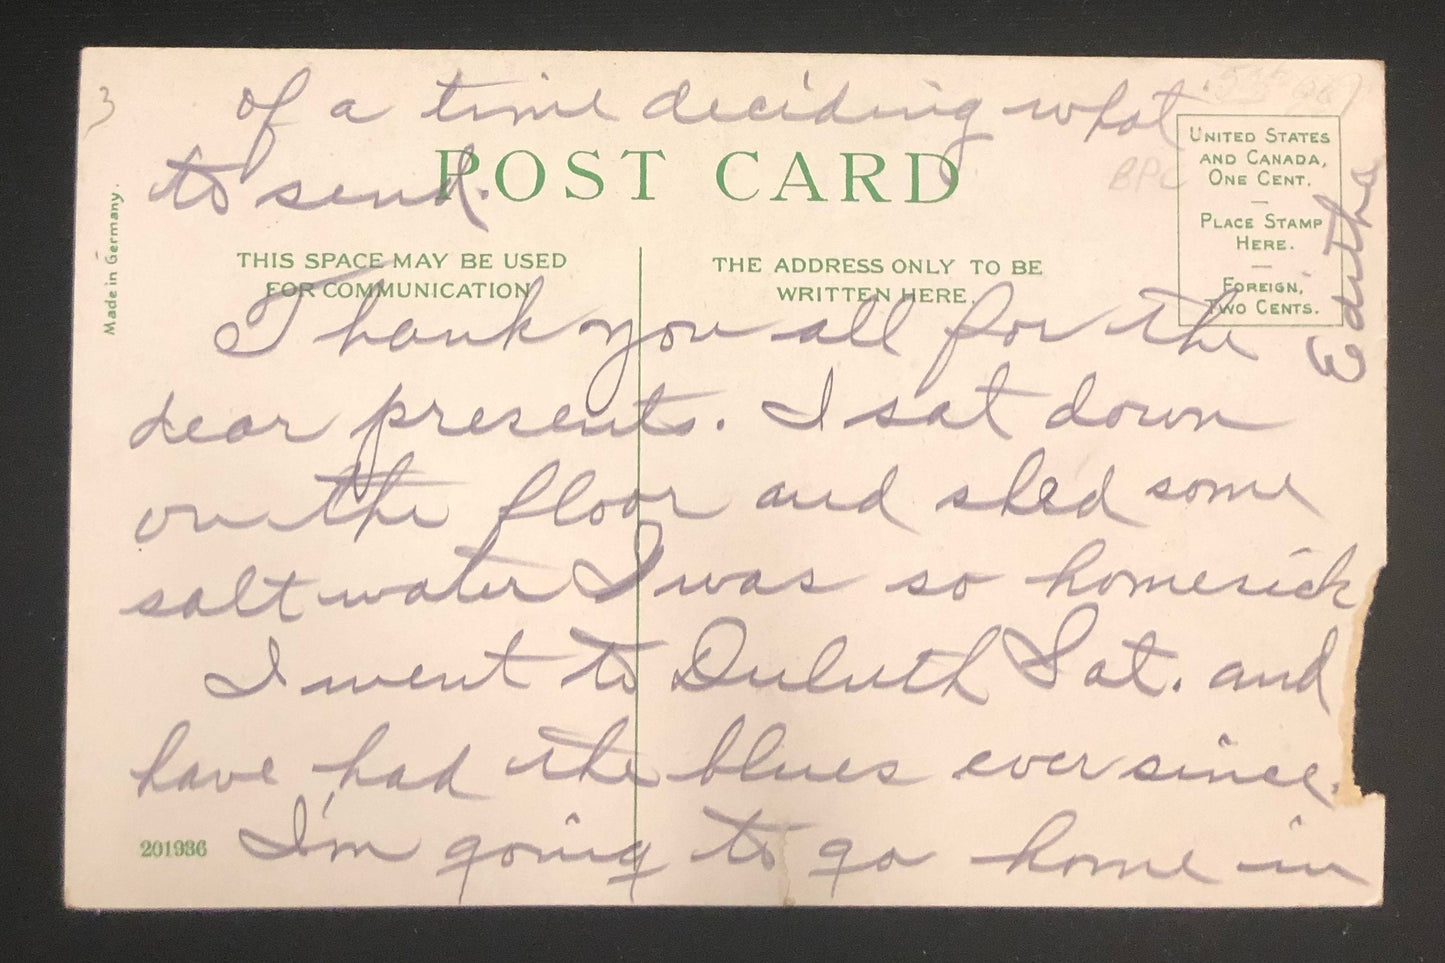 3
of a time deciding what
to send.
POST CARD
BPC
UNITED STATES
AND CANADA,
ONE CENT.
PLACE STAMP
HERE.
FOREIGN,
TWO CENTS.
Made in Germany.
THIS SPACE MAY BE USED
FOR COMMUNICATION
THE ADDRESS ONLY TO BE
WRITTEN HERE.
Thank you all for the
dear presents. I sat down
on the floor and shed some
salt water I was so homesick
I went to Duluth Sat. and
have had the blues ever since.
I'm going to go home in
201936